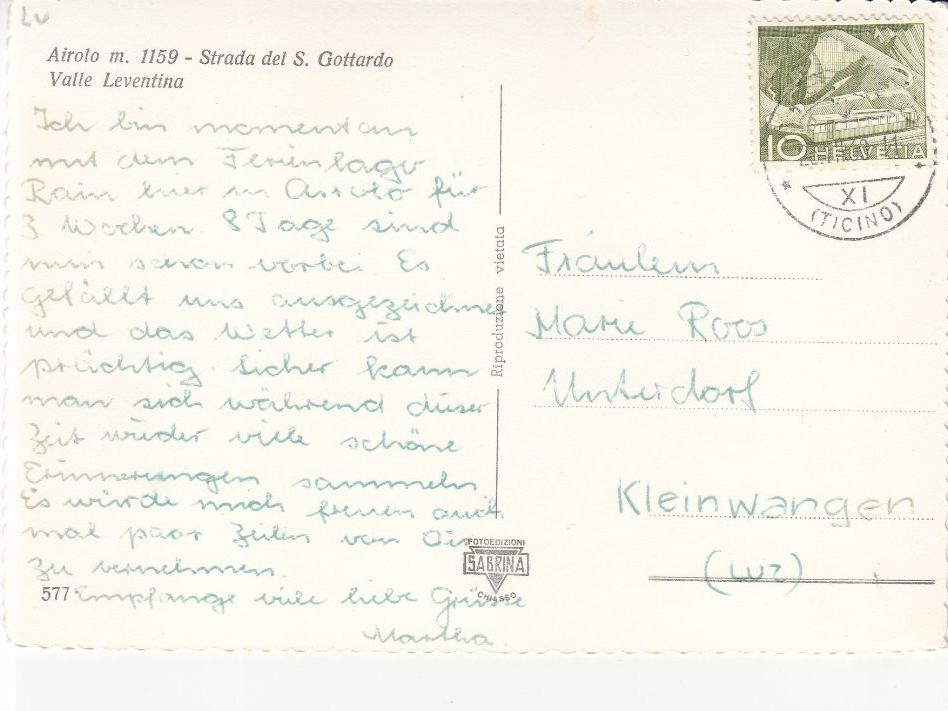 Lu
Airolo m. 1159 - Strada del S. Gottardo
Valle Leventina
Ich bin momentan
mit dem Ferienlager
Rain hier in Airolo für
3 Wochen. 8 Tage sind
nun schon vorbei. Es
gefällt uns ausgezeichnet
und das Wetter ist
prächtig. Sicher kann
man sich während dieser
Zeit wieder viele schöne
Erinnerungen sammeln
Es würde mich freuen auch
mal paar Zeilen von Dir
zu vernehmen.
Empfange viele liebe Grüsse
Martha.
577
Riproduzione vietata
FOTOEDIZIONI
SABRINA
CHIASSO
10 HELVETIA
XI
(TICINO)
Fräulein
Marie Roos
Unterdorf
Kleinwangen
(Luz)